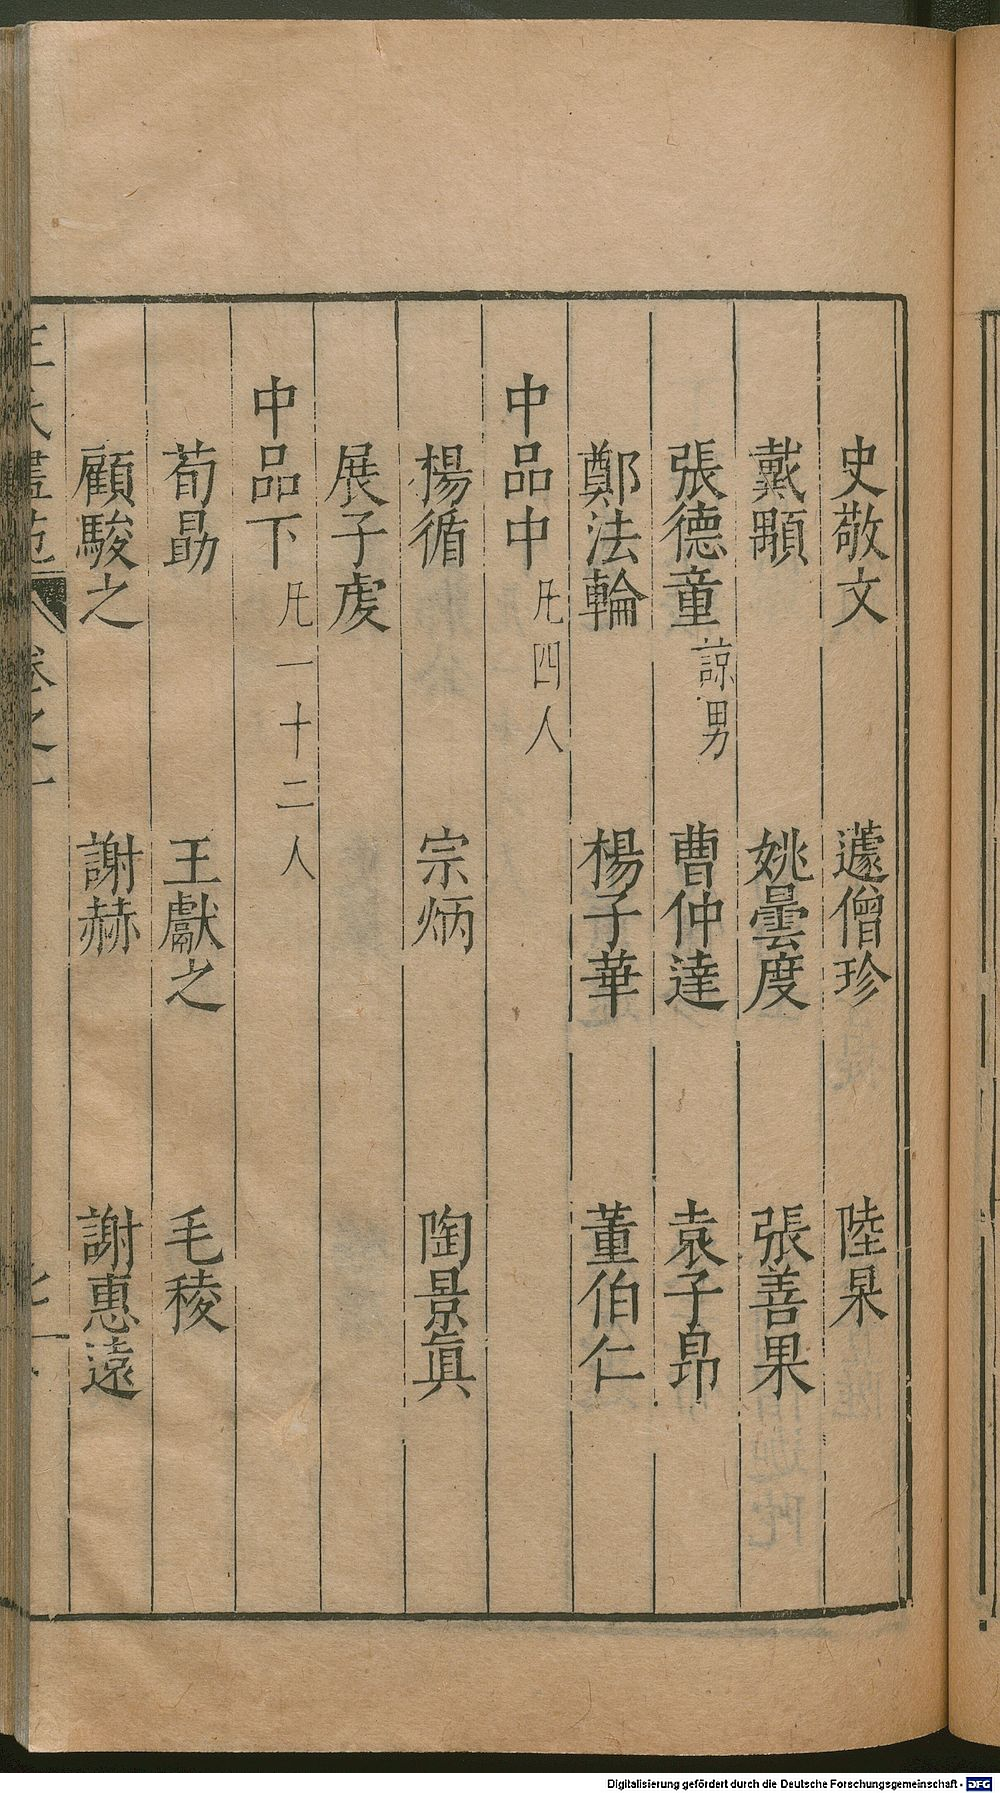 史敬文 蘧僧珍 陸杲
戴顒 姚曇度 張善果
張德童諒男 曹仲達 袁子昂
鄭法輪 楊子華 董伯仁
中品中凡四人
楊循 宗炳 陶景真
展子虔
中品下凡一十二人
荀勗 王獻之 毛稜
顧駿之 謝赫 謝惠遠
王氏畫苑 卷之一
Digitalisierung gefördert durch die Deutsche Forschungsgemeinschaft - DFG